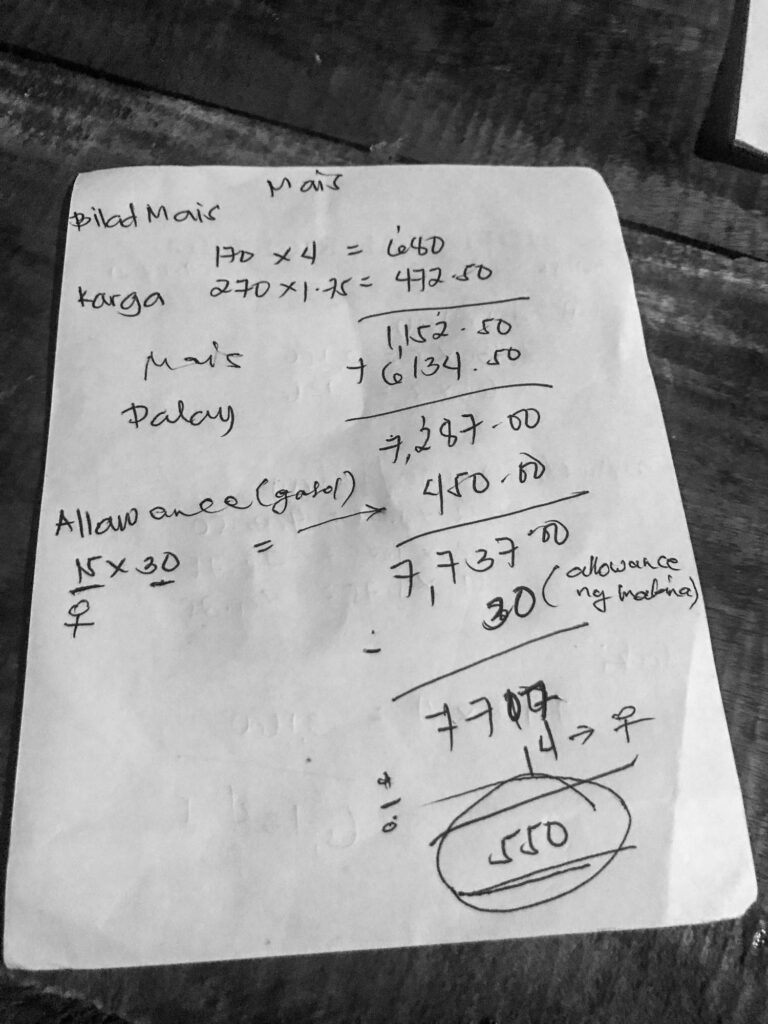 Mais
Bilad Mais
170 x 4 = 680
Karga 270 x 1.75 = 472.50
1,152.50
Mais + 6134.50
Palay
7,287.00
Allowance (gasol) → 450.00
15 x 30 =
7,737.00
- 30 (allowance ng makina)
7707
÷ 14 →
550